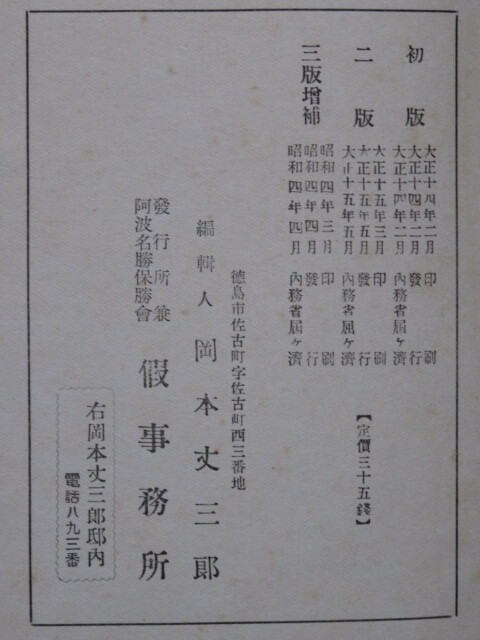 初版
大正十四年二月印刷
大正十四年二月發行
大正十四年二月內務省屆ケ濟
二版
大正十五年三月印刷
大正十五年五月發行
大正十五年五月內務省屆ケ濟
三版增補
昭和四年三月印刷
昭和四年四月發行
昭和四年四月內務省屆ケ濟
【定價三十五錢】
德島市佐古町字佐古町西三番地
編輯人 岡本丈三郎
發行所兼
阿波名勝保勝會
假事務所
右岡本丈三郎邸內
電話八九三番